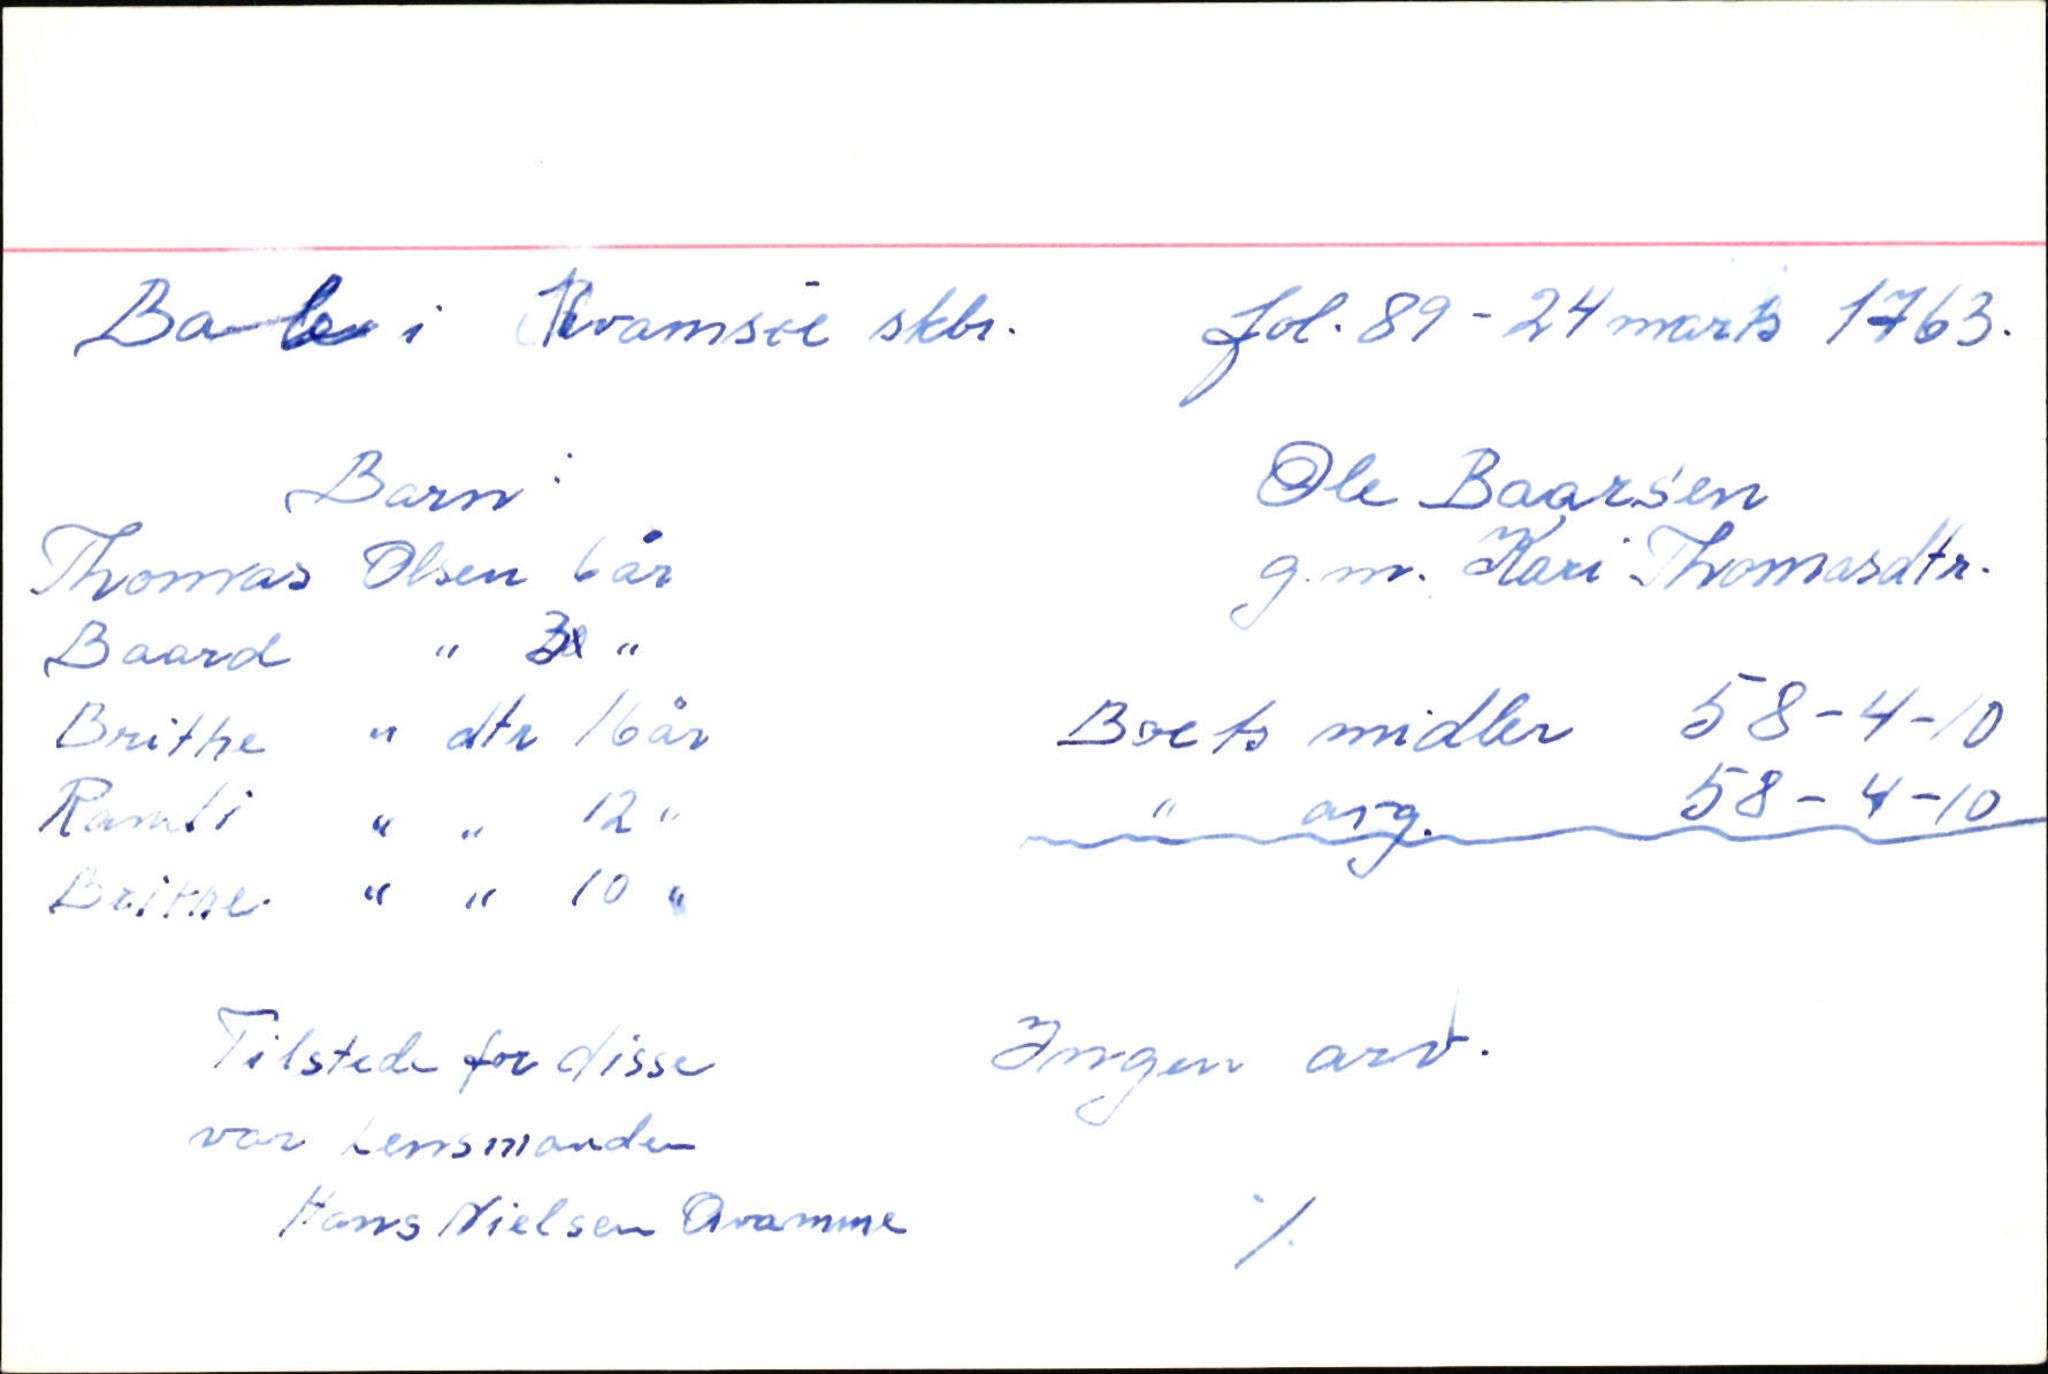 Bale i Kvamsöe skbr. fol. 89 - 24 marts 1763.
Ole Baarsen
g.m. Kari Thomasdtr.
Barn:
Thomas Olsen 6 år
Baard " "
Brithe " dtr 16 år
Randi " " 12 "
Brithe " " 10 "
Boets midler 58-4-10
" arg. 58-4-10
Tilstede for disse
var Lensmanden
Hans Nielsen Qvamme
Ingen arv.
./.